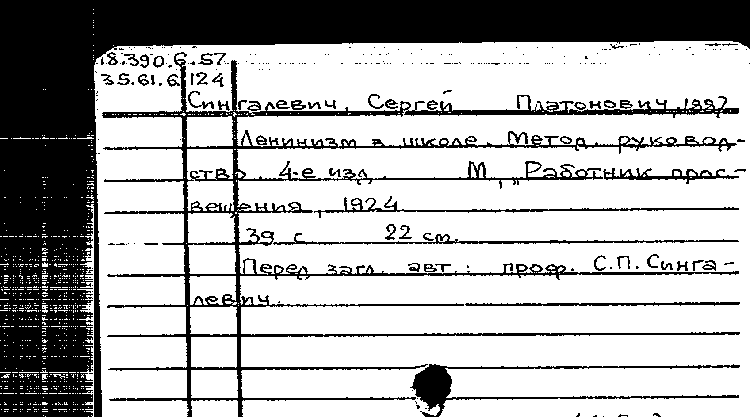 18.390.6.57
35.61.6.124
Сингалевич, Сергей Платонович, 1887
Ленинизм в школе. Метод. руковод-
ство. 4-е изд. М, „Работник прос-
вещения, 1924
39 с 22 см.
Перед загл. авт.: проф. С.П. Синга-
левич.